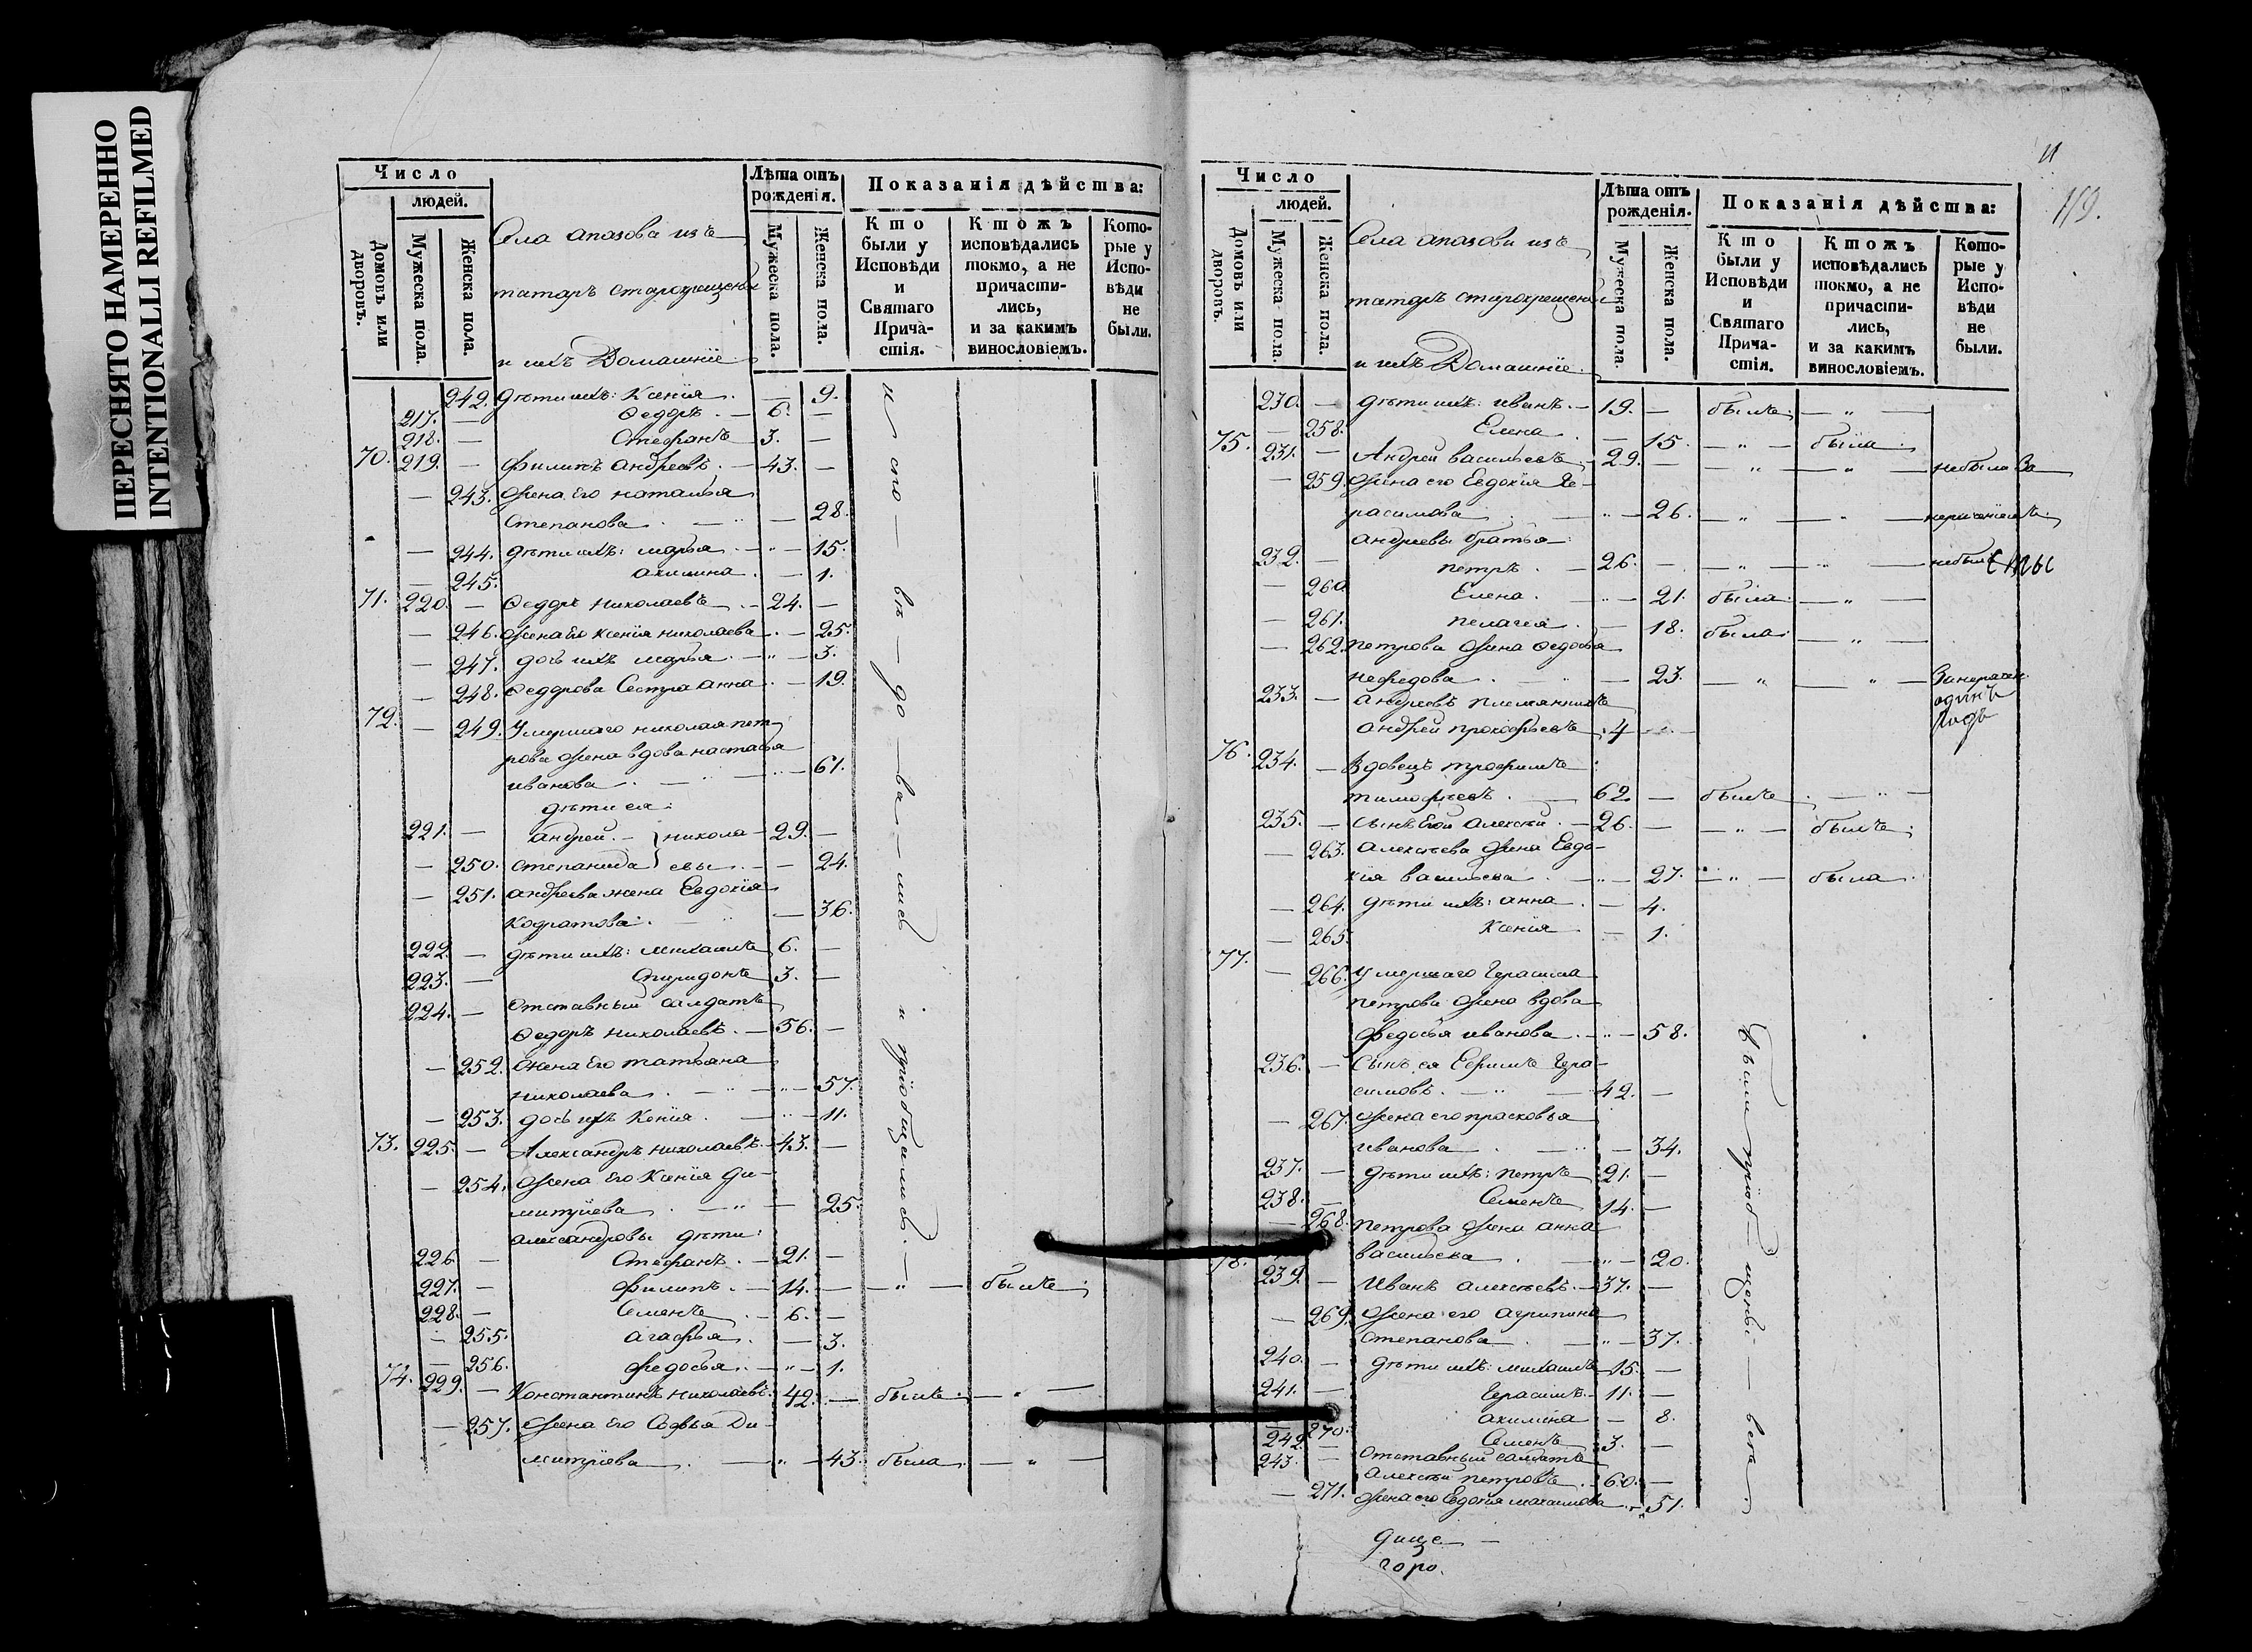 ПЕРЕСНЯТО НАМЕРЕННО
INTENTIONALLI REFILMED
Число
людей.
Домовъ или дворовъ.
Мужеска пола.
Женска пола.
Села апазова изъ
татаръ старокрещеныхъ
и ихъ Домашнiе
Лѣта отъ рожденiя.
Мужеска пола.
Женска пола.
Показанiя дѣйства:
Кто были у Исповѣди и Святаго Причастiя.
Ктожъ исповѣдались токмо, а не причасти-лись, и за какимъ винословiемъ.
Кото-рые у Испо-вѣди не были.
242. дѣти ихъ: Ксенiя. — 9.
217. — Ѳедоръ. — 6. —
218. — Стефанъ 3. —
70. 219. — филипъ андреевъ. — 43. —
— 243. жена его наталья
степанова. — 28.
— 244. дѣти ихъ: марья. — 15.
— 245. акилина. — 1.
71. 220. — Ѳедоръ николаевъ. — 24. —
— 246. жена его ксенiя николаева. — 25.
— 247. дочь ихъ марья. — 3.
— 248. Ѳедорова Сестра анна. — 19.
72. — 249. Умершаго николая пет-
рова жена вдова настасья
иванова. — 61.
дѣти ея:
221. — андрей. — } никола- 29. —
— 250. степанида } евы. — 24.
— 251. андреева жена Евдокiя
кодратова. — 36.
222. — дѣти ихъ: михаилъ 6. —
223. — Спиридонъ 3. —
224. — Отставный салдатъ
Ѳедоръ николаевъ. — 56. —
— 252. жена его татьяна
николаева. — 57.
— 253. дочь ихъ Ксенiя. — 11.
73. 225. — Александръ николаевъ. — 43. —
— 254. жена его Ксенiя ди-
митрiева. — 25.
александровы дѣти:
226. — Стефанъ. — 21. —
227. — филипъ. — 14. — — " — былъ.
228. — Семенъ. — 6. —
— 255. агафья. — 3.
— 256. федосья. — " — 1.
74. 229. — Константинъ николаевъ. 42. — былъ. — " —
— 257. жена его Софья Ди-
митрiева. — " — 43. была. — " —
119.
Число
людей.
Домовъ или дворовъ.
Мужеска пола.
Женска пола.
Села апазова изъ
татаръ старокрещеныхъ
и ихъ Домашнiе.
Лѣта отъ рожденiя.
Мужеска пола.
Женска пола.
Показанiя дѣйства:
Кто были у Исповѣди и Святаго Прича-стiя.
Ктожъ исповѣдались токмо, а не причасти-лись, и за какимъ винословiемъ.
Кото-рые у Испо-вѣди не были.
230. — дѣти ихъ: иванъ. — 19. — былъ. — " —
— 258. Елена. — 15. — " — была.
75. 231. — Андрей васильевъ. — 29. — — " — — " — небыли За
— 259. жена его Евдокiя Ге-
расимова. — " — 26. — " — — " — нераченiемъ.
андреевы братья:
232. — петръ. — 26. — — " — — " —
— 260. Елена. — " — 21. была. — " —
— 261. пелагея. — 18. была. — " —
— 262. петрова жена Ѳедосья
нефедова. — 23. — " — — " —
одинъ
годъ
233. — андреевъ племянникъ
андрей прокофьевъ. 4 —
76. 234. — Вдовецъ трофимъ
тимофеевъ. — 62. — былъ. — " —
235. — сынъ его алексѣй. — 26. — — " — былъ.
— 263. алексѣева жена Евдо-
кiя васильева. — " — 27. — " — была.
— 264. дѣти ихъ: анна. — 4.
— 265. Ксенiя. — 1.
77. — 266. умершаго Герасима
петрова жена вдова
федосья иванова. — " — 58.
236. — Сынъ ея Ефимъ Гера-
симовъ. — " — 42. —
— 267. жена его прасковья
иванова. — 34.
237. — дѣти ихъ: петръ 21. —
238. — Семенъ 14. —
— 268. петрова жена анна
васильева. — " — 20.
78. 239. — Иванъ алексѣевъ. — 37. —
— 269. жена его агрипина
степанова. — " — 37.
240. — дѣти ихъ: михаилъ — 15. —
241. — Герасимъ. — 11. —
— 270. акилина — 8.
242. — Семенъ 3. —
243. — отставный салдатъ
алексѣй петровъ. — 60. —
— 271. жена его Евдокiя максимова. — 51.